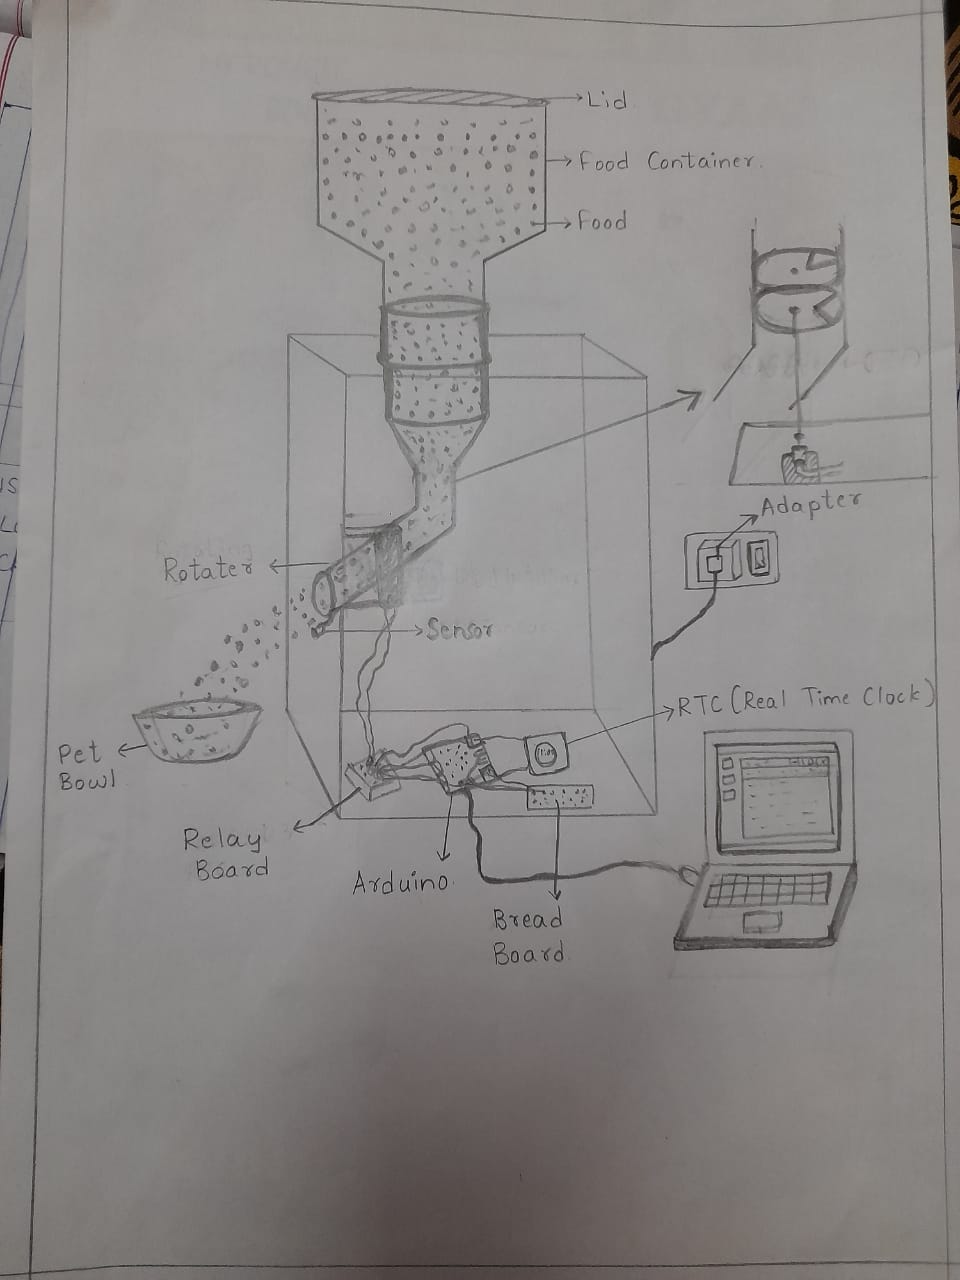 Lid
Food Container.
Food
Adapter
Rotater
Sensor
RTC (Real Time Clock)
Pet
Bowl
Relay
Board
Arduino.
Bread
Board